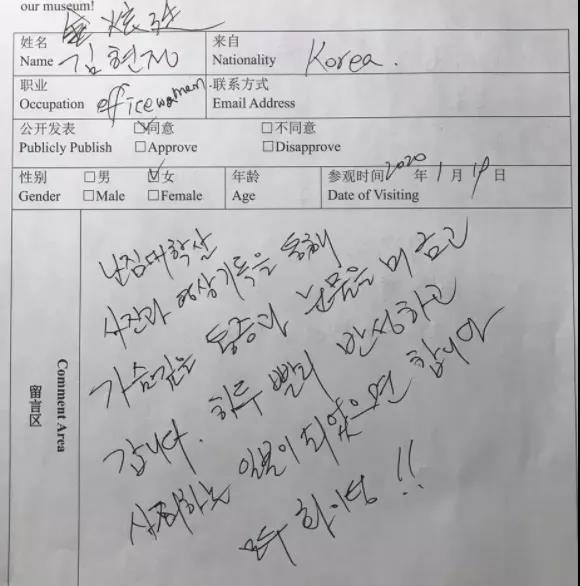 our museum!
金炫廷
姓名 来自
Name 김현정 Nationality Korea.
职业 联系方式
Occupation officewoman. Email Address
公开发表 ☑同意 ☐不同意
Publicly Publish ☐Approve ☐Disapprove
性别 ☐男 ☑女 年龄 参观时间 2020 年 1 月 19 日
Gender ☐Male ☐Female Age Date of Visiting
留言区
Comment Area
난징대학살
사진과 영상기록을 통해
가슴깊은 통증과 눈물을 머금고
갑니다. 하루 빨리 반성하고
사죄하는 일본이 되었으면 합니다
모두 화이팅!!